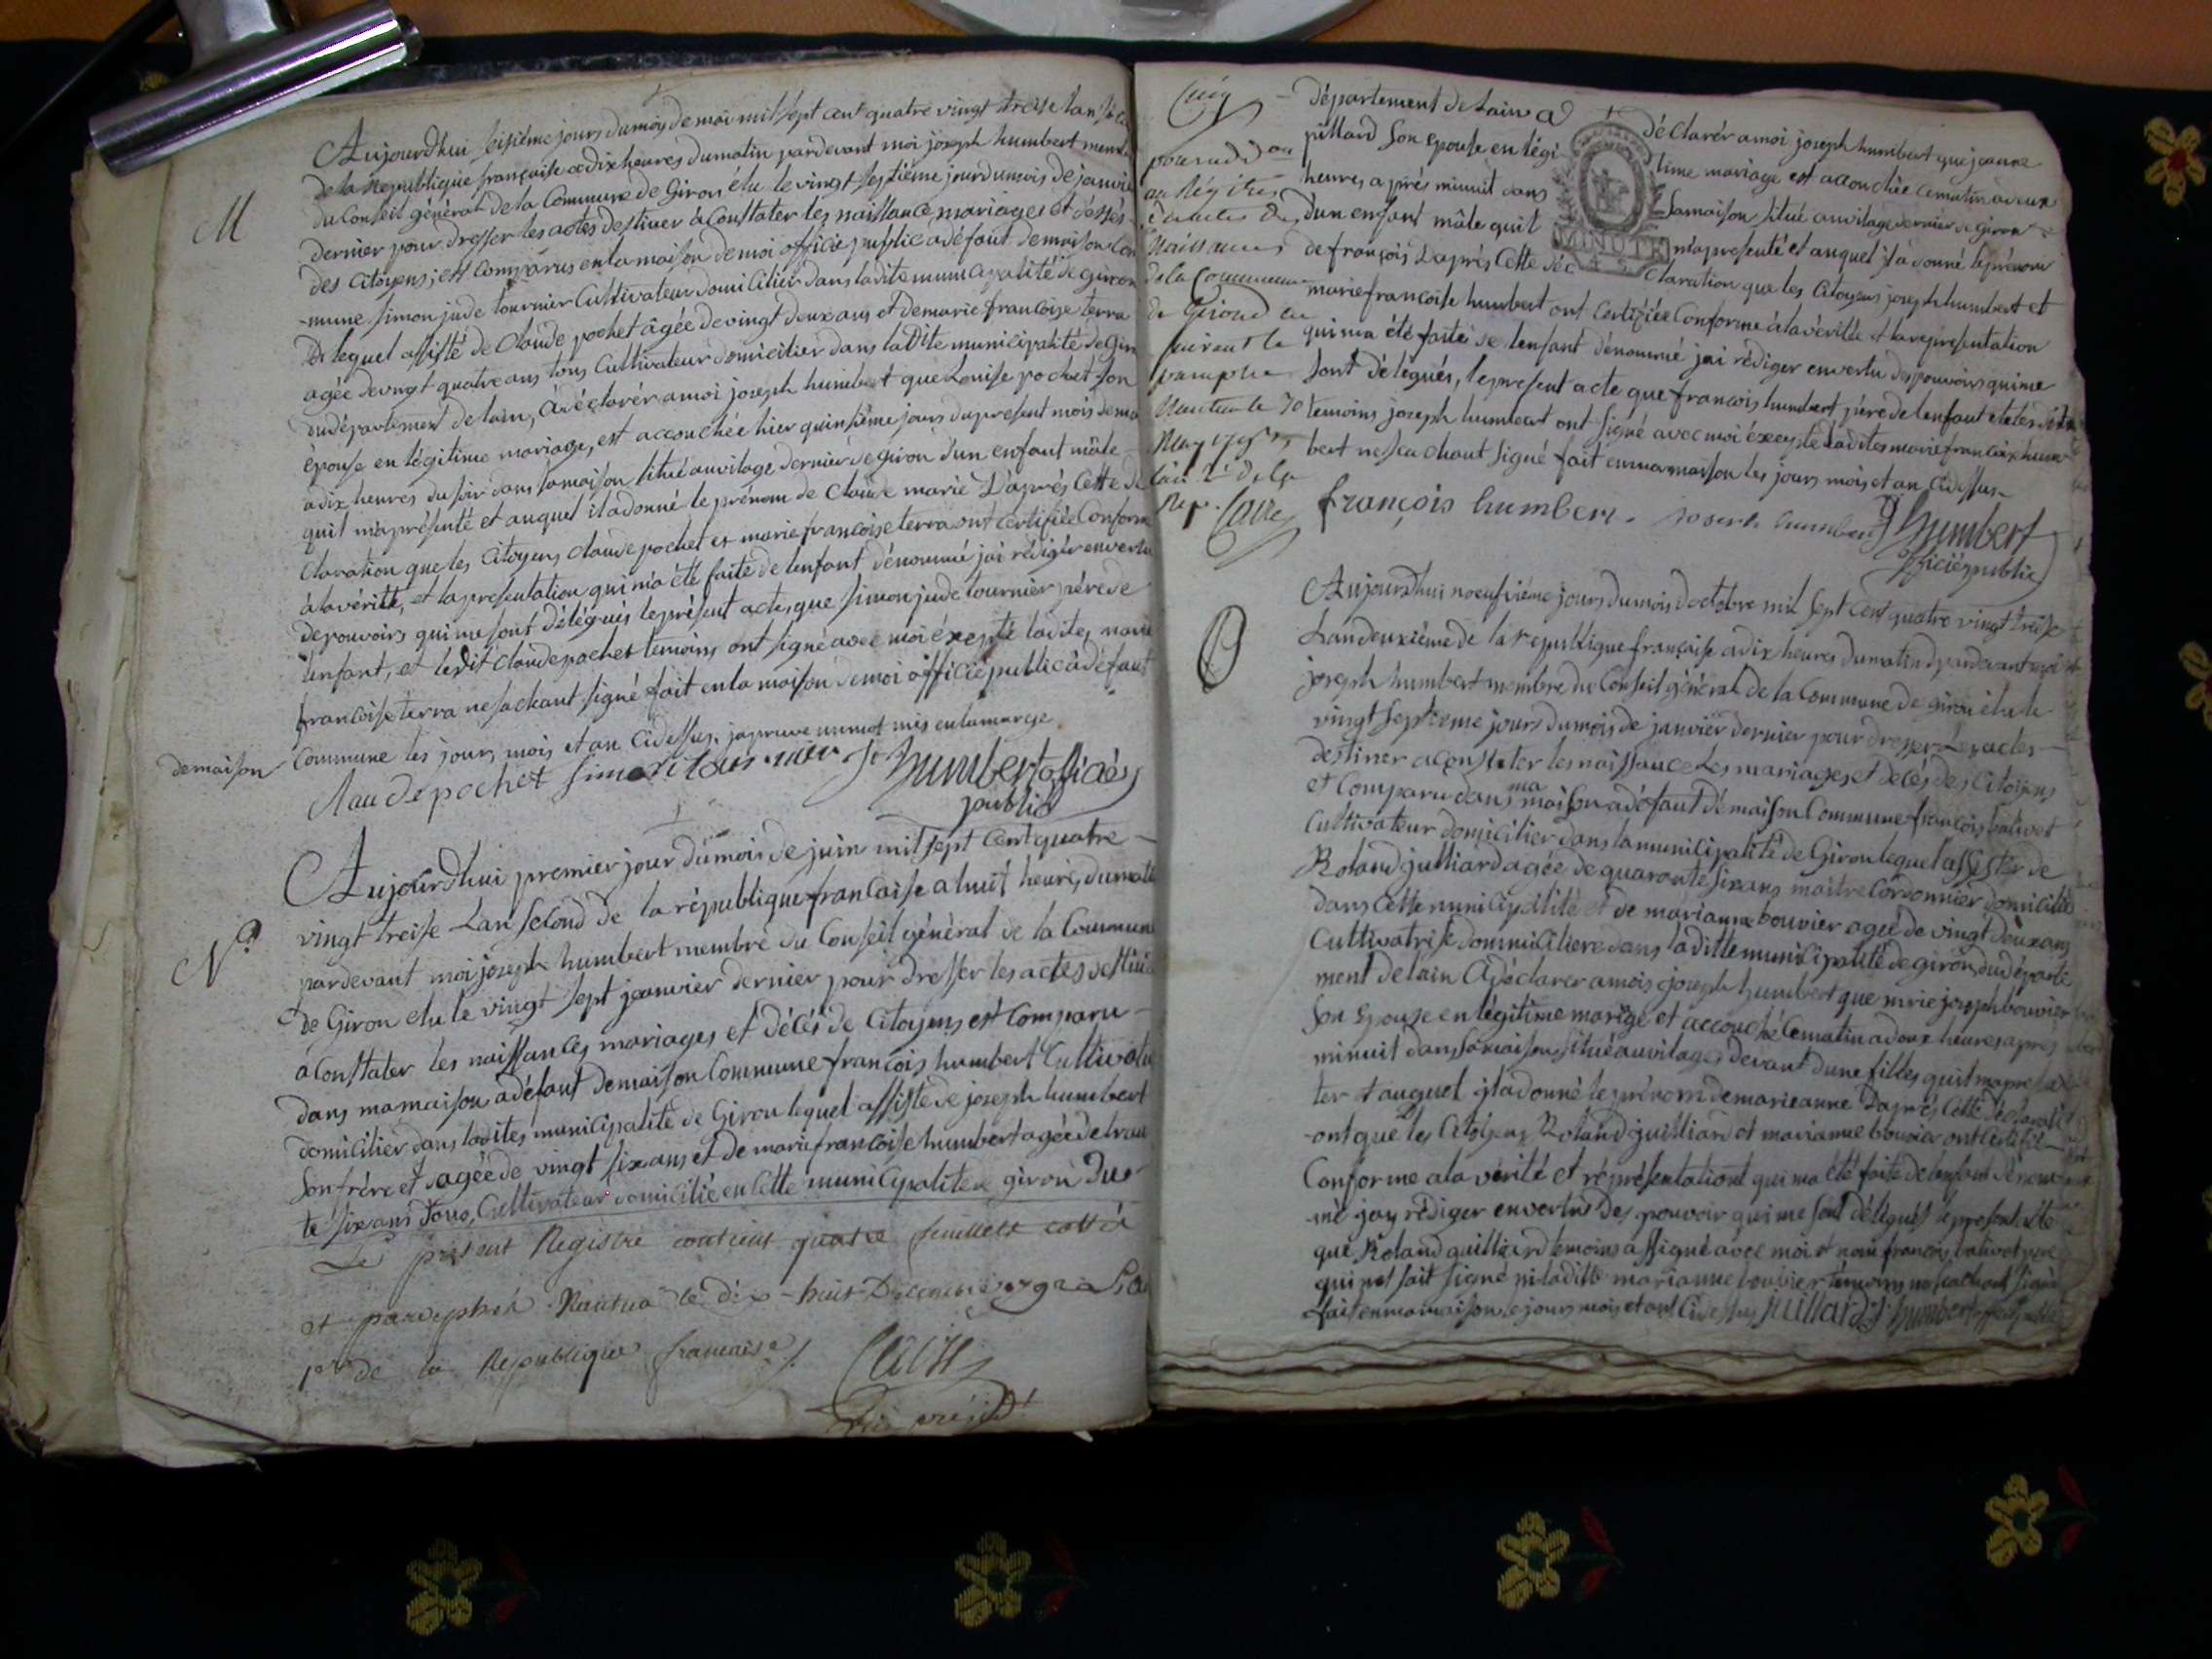 M
Aujourdhui seisième jours du mois de mai mil sept cent quatre vingt treise lan
de la Republique française a dix heures du matin par devant moi joseph humbert
du Conseil général de la Commune de Giron élu le vingt septième jour du mois de janvier
dernier pour dresser les actes destiner à Constater les naissance mariages et décés
des Citoyens, est Comparus en la maison de moi officié public a défaut de maison Com
-mune simon jude tournier Cultivateur domicilier dans ladite municipalité de giron
lequel assisté de Claude pochet âgée de vingt deux ans et de marie françoise terra
agée de vingt quatre ans tous Cultivateur domicilier dans ladite municipalité de Giron
du département de lain, a déclarér a moi joseph humbert que Louise pochet son
épouse en légitime mariage, est accouchée hier quinsième jours du present mois de mai
a dix heures du soir dans sa maison situé au vilage dernier de giron d'un enfant mâle
quil ma présenté et auquel il a donné le prénom de Claude marie D'aprés Cette dé
claration que les Citoyens Claude pochet et marie françoise terra ont certifiée Conforme
à la vérité, et la presentation qui m'a été faite de lenfant dénommé j'ai rédiger en vertu
de pouvoirs qui me sont délégués le présent acte que simon jude tournier père de
lenfant, et ledit Claude pochet temoins ont signé avec moi éxcepté ladites marie
françoise terra ne sachant signé fait en la maison de moi officié public à défaut
demaison
Commune les jours mois et an Cidessus. japreuve un mot mis en la marge
Claude pochet simon tournier J. humbert officié
public
N°
Aujourdhui premier jour du mois de juin mil sept cent quatre
vingt treise Lan second de la république françoise a huit heures du matin
par devant moi joseph humbert membre du Conseil général de la Commune
de Giron elu le vingt sept jeanvier dernier pour dresser les actes destiner
à Constater les naissances mariages et décés de Citoyens est Comparu
dans ma maison a défaut de maison Commune françois humbert Cultivateur
domicilier dans ladites municipalité de Giron lequel assisté de joseph humbert
son frère et agée de vingt six ans et de marie françoise humbert agée de tran
te six ans tous Cultivateur domicilié en Cette municipalité de giron du
Le present Registre contient quatre feuillets cottés
et paraphés. Nantua le dix-huit Decembre 1792
1er de la Republique francaise
vice présidt
Cinq
pour addition
au Régitre
d'actes de
Naissances
de la Commune
de Giroud en
suivant le
paraphe
Nantua le 30
May 1793
l'an 2e de la
Rep.
département de Lain a déclarér a moi joseph humbert que jeanne
pillard son epouse en légitime mariage est accouchée ce matin a deux
heures après minuit dans sa maison situé au vilage dernier de giron
dun enfant mâle quil ma presenté et auquel il a donné le prénom
MINUTE
de françois D'aprés Cette déclaration que les Citoyens joseph humbert et
marie françoise humbert ont Certifiée Conforme à la vérité et la representation
qui ma été faite de lenfant dénommé jai rédiger en vertu des pouvoirs qui me
sont délégués, le present acte que françois humbert père de lenfant et ledit
temoins joseph humbert ont signé avec moi éxcepté ladites marie françoise hum
bert ne sachant signé fait en ma maison les jours mois et an cidessus
françois humbert. joseph humbert J humbert
officié public
O
Aujourdhui noeuvième jours du mois doctobre mil sept cent quatre vingt treise
Lan deuxième de la republique française a dix heures du matin pardevant moi
joseph humbert membre du Conseil général de la Commune de giron élu le
vingt septieme jours du mois de janvier dernier pour dresser Les actes
destiner a Constater les naissance Les mariages et decés des Citoiyens
et Comparu dans ma maison a défaut de maison Commune françois balivet
Cultivateur domicilier dans la municipalité de Giron lequel assister de
Roland juilliard agée de quarante six ans maitre Cordonnier domicilié
dans Cette municipalité et de marianne bouvier agée de vingt deux ans
Cultivatrise domiciliere dans la ditte municipalité de giron du départe
ment de lain A déclarer a mois joseph humbert que mrie joseph bouvier
son Epouse en légitime marige et accouché Ce matin a doux heures apres
minuit dans sa maison situé au vilages devant dune filles quil ma presen
ter et auquel il a donné le prénom de marieanne D'aprés Cette déclarati
-ont que les Citoyens Roland juilliard et marianne bouvier ont Certifié
Conforme a la vérité et représentationt qui ma été faite de lenfant dénom
-mé jay rédiger en vertu des pouvoir qui me sont délégués le present acte
que Roland guilliard temoins a signé avec moi et non françois balivet pere
qui ne sait signé ni laditte marianne bouvier témoins ne sachant signé
fait en ma maison le jours mois et ant Cidessus juillard J humbert officié public